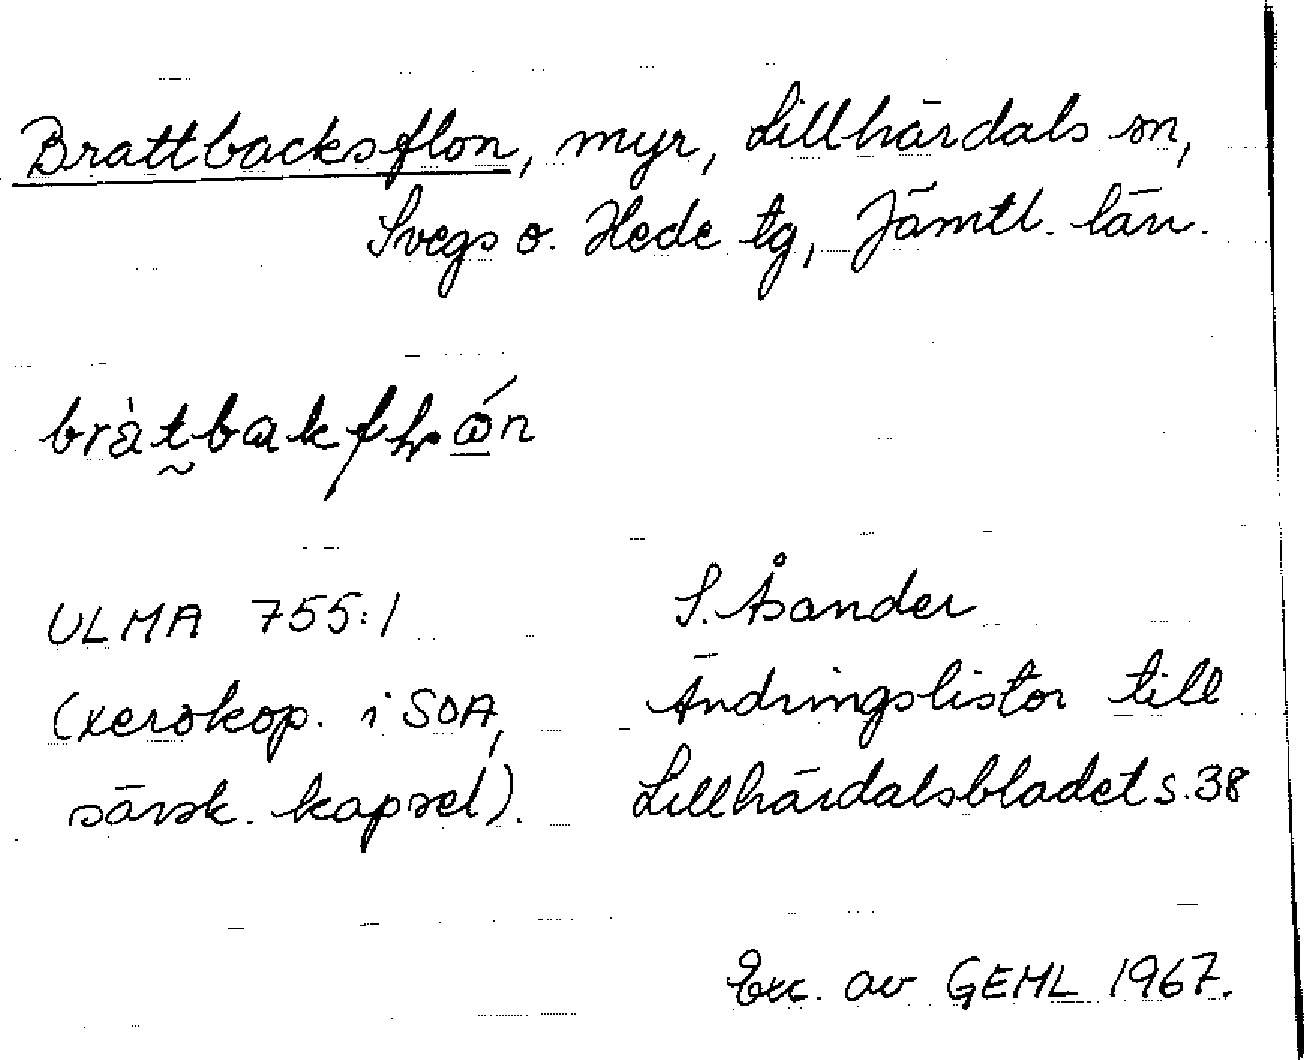 Brattbacksflon, myr, Lillhärdals sn,
Svegs o. Hede tg, Jämtl. län.
ULMA 755:1
(xerokop. i SOA,
särsk. kapsel).
S. Åsander
Ändringslistor till
Lillhärdalsbladet s. 38
Exc. av GEHL 1967.